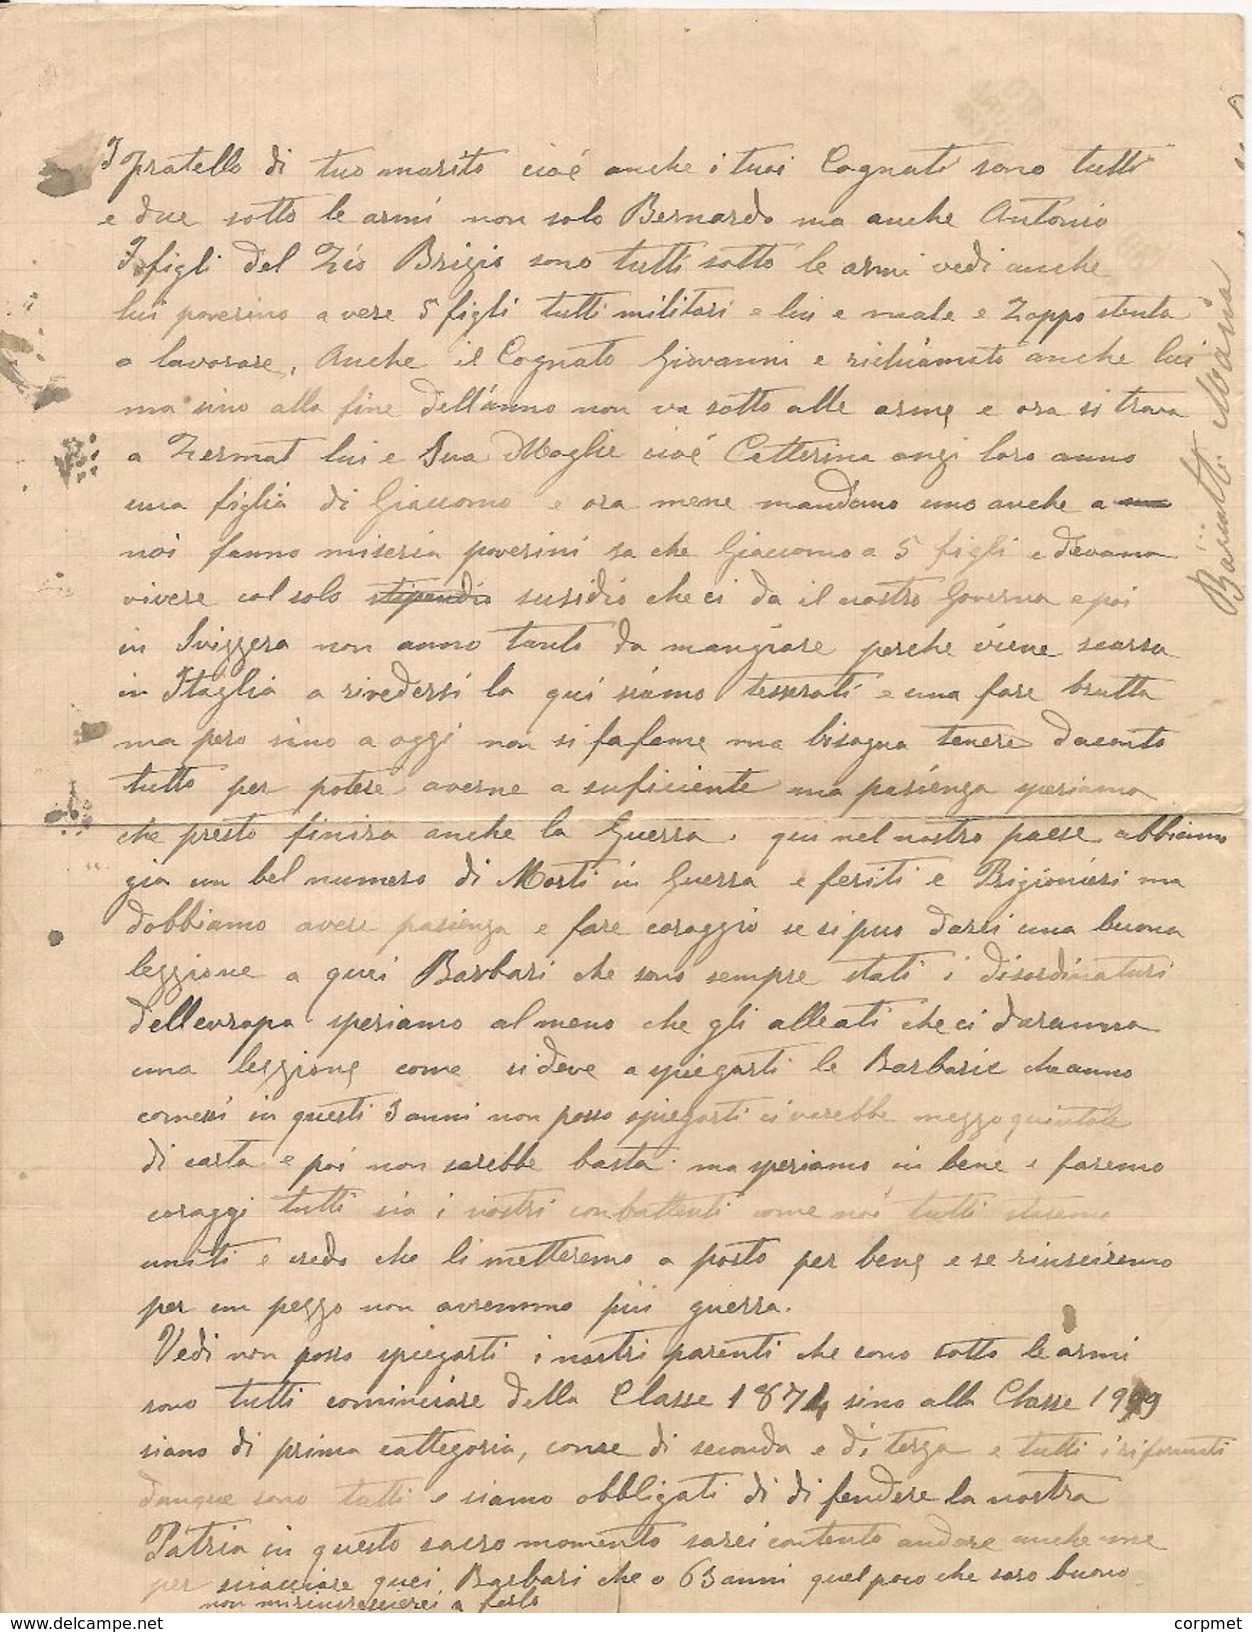 I fratello di tuo marito cioé anche i tuoi Cognati sono tutti
e due sotto le armi non solo Bernardo ma anche Antonio
I figli del Zio Brigio sono tutti sotto le armi vedi anche
lui poverino avere 5 figli tutti militari e lui e male e Zoppo stenta
a lavorare, Anche il Cognato Giovanni e richiamato anche lui
ma sino alla fine dell'anno non va sotto alle arme e ora si trova
a Zermat lui e Sua Moglie cioé Catterina anzi loro anno
una figlia di Giacomo e ora mene mandano uno anche a
noi fanno miseria poverini sa che Giacomo a 5 figli e devano
vivere col solo stipendio sussidio che ci da il nostro Governa e poi
in Svizzera non anno tanto da mangiare perche viene scarsa
in Itaglia a rivedersi la qui siamo tesserati e una fare brutta
ma pero sino a oggi non si fa fame ma bisogna tenere daconto
tutto per potere averne a suficiente ma pasienza speriamo
che presto finira anche la Guerra. qui nel nostro paese abbiamo
gia un bel numero di Morti in Guerra e feriti e Prigionieri ma
dobbiamo avere pasienza e fare coraggio se si puo darci una buona
leggione a quei Barbari che sono sempre stati i disordinaturi
dell europa speriamo al meno che gli alleati che ci daranno
una leggione come si deve a spiegarti le Barbarie che anno
comessi in questi 3 anni non posso spiegarti ci varebbe mezzo quintale
di carta e poi non sarebbe basta. ma speriamo in bene e faremo
coraggi tutti sia i nostri conbattenti come noi tutti staremo
uniti e credo che li metteremo a posto per bene e se rinsciremo
per un pezzo non avremmo piú guerra.
Vedi non posso spiegarti i nostri parenti che sono sotto le armi
sono tutti cominciare della Classe 1874 sino alla Classe 1999
siano di prima cattegoria, come di seconda e di terza e tutti i riformati
dunque sono tutti e siamo obbligati di difendere la nostra
Patria in questo sacro momento sarei contento andare anche me
per sciacciare quei Barbari che o 63 anni quel poco che saro buono
non mi rincrescerei a farlo
Bariatti Maria